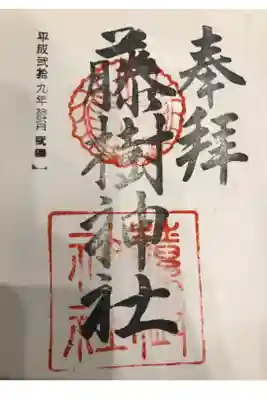 奉拝
藤樹神社
平成弐拾九年
藤樹神社